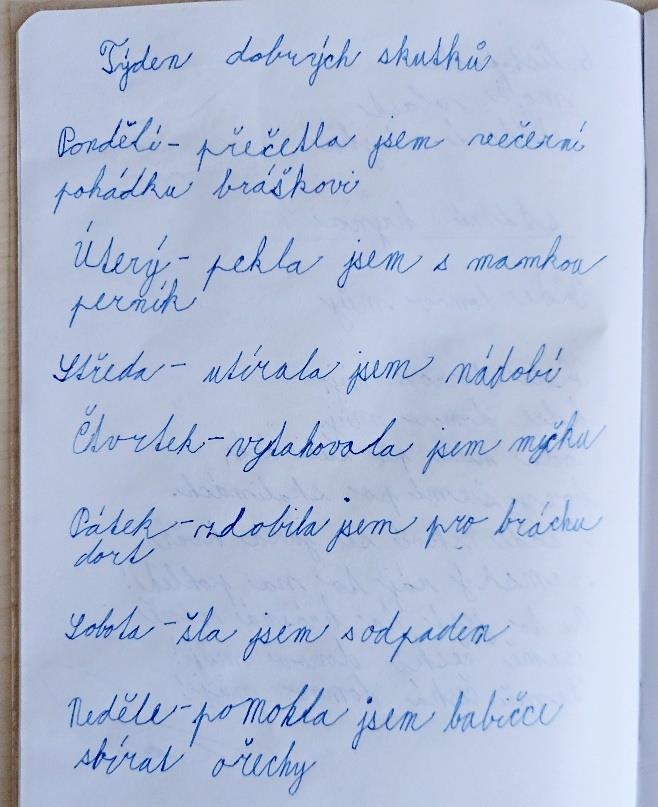 Týden dobrých skutků
Pondělí - přečetla jsem večerní
pohádku bráškovi
Úterý - pekla jsem s mamkou
perník
Středa - utírala jsem nádobí
Čtvrtek - vytahovala jsem myčku
Pátek - zdobila jsem pro bráchu
dort
Sobota - šla jsem s odpadem
Neděle - pomohla jsem babičce
sbírat ořechy